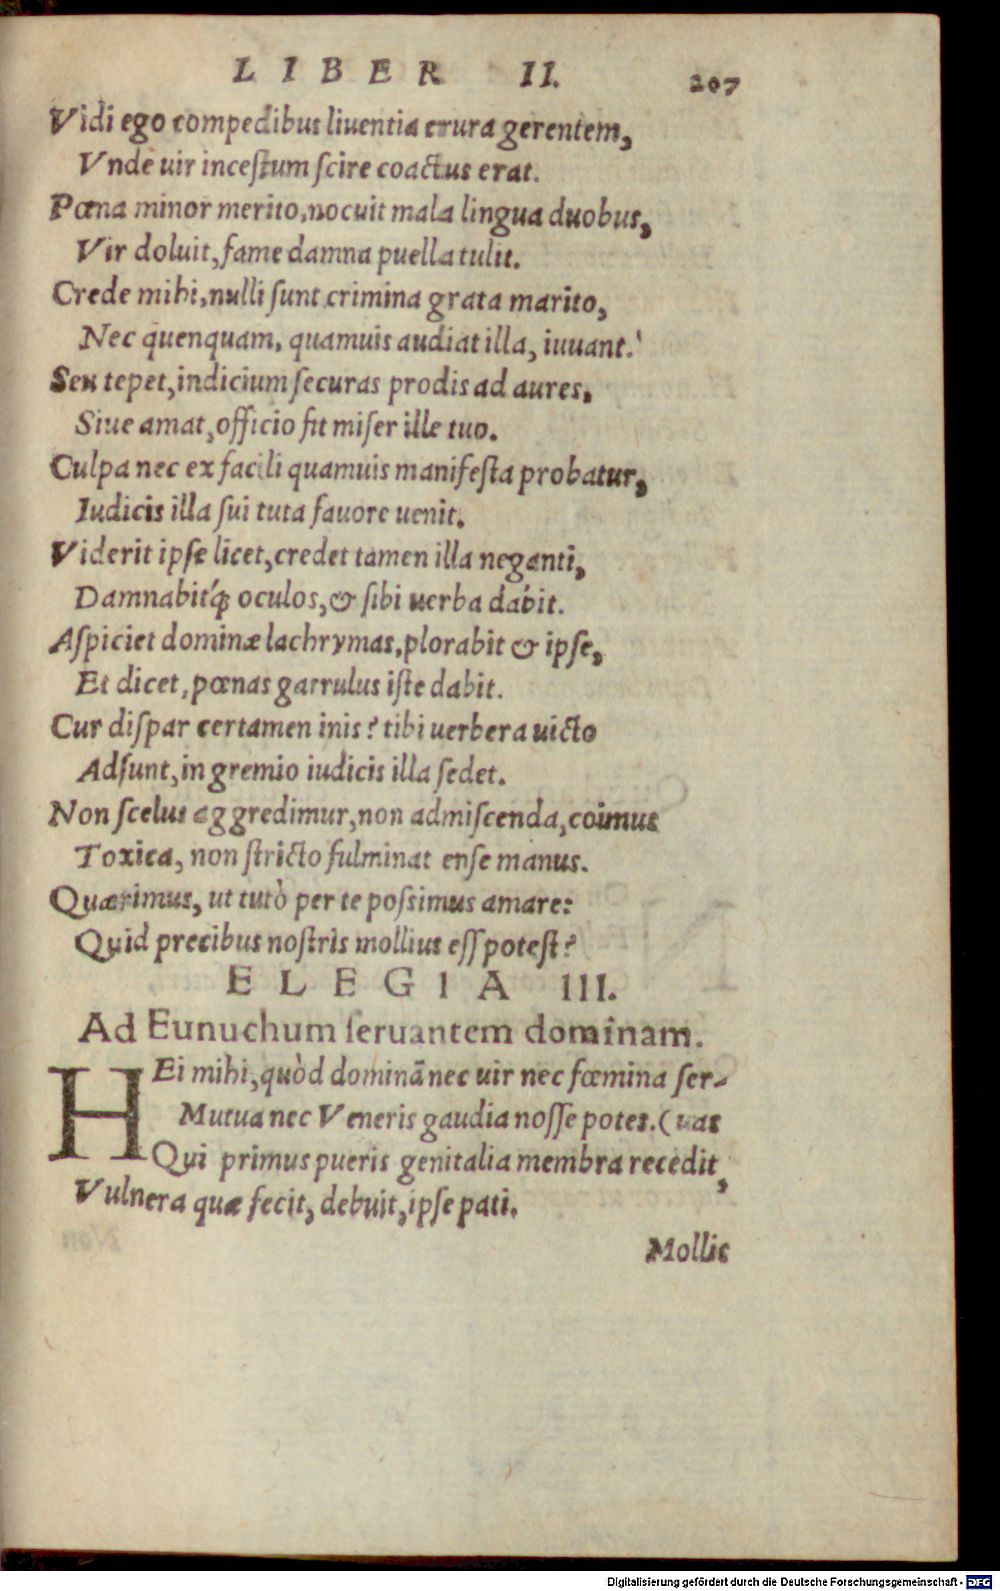 LIBER II. 207
Vidi ego compedibus liuentia crura gerentem,
Vnde uir incestum scire coactus erat.
Pœna minor merito, nocuit mala lingua duobus,
Vir doluit, fame damna puella tulit.
Crede mihi, nulli sunt crimina grata marito,
Nec quenquam, quamuis audiat illa, iuuant.
Seu tepet, indicium securas prodis ad aures,
Siue amat, officio fit miser ille tuo.
Culpa nec ex facili quamuis manifesta probatur,
Iudicis illa sui tuta fauore uenit.
Viderit ipse licet, credet tamen illa neganti,
Damnabitq́; oculos, & sibi uerba dabit.
Aspiciet dominæ lachrymas, plorabit & ipse,
Et dicet, pœnas garrulus iste dabit.
Cur dispar certamen inis? tibi uerbera uicto
Adsunt, in gremio iudicis illa sedet.
Non scelus aggredimur, non admiscenda, coimus
Toxica, non stricto fulminat ense manus.
Quærimus, ut tutò per te possimus amare:
Quid precibus nostris mollius ess potest?
ELEGIA III.
Ad Eunuchum seruantem dominam.
HEi mihi, quòd dominā nec uir nec fœmina ser-
Mutua nec Veneris gaudia nosse potes. (uas
Qui primus pueris genitalia membra recedit,
Vulnera quæ fecit, debuit, ipse pati.
Mollis
Digitalisierung gefördert durch die Deutsche Forschungsgemeinschaft - DFG